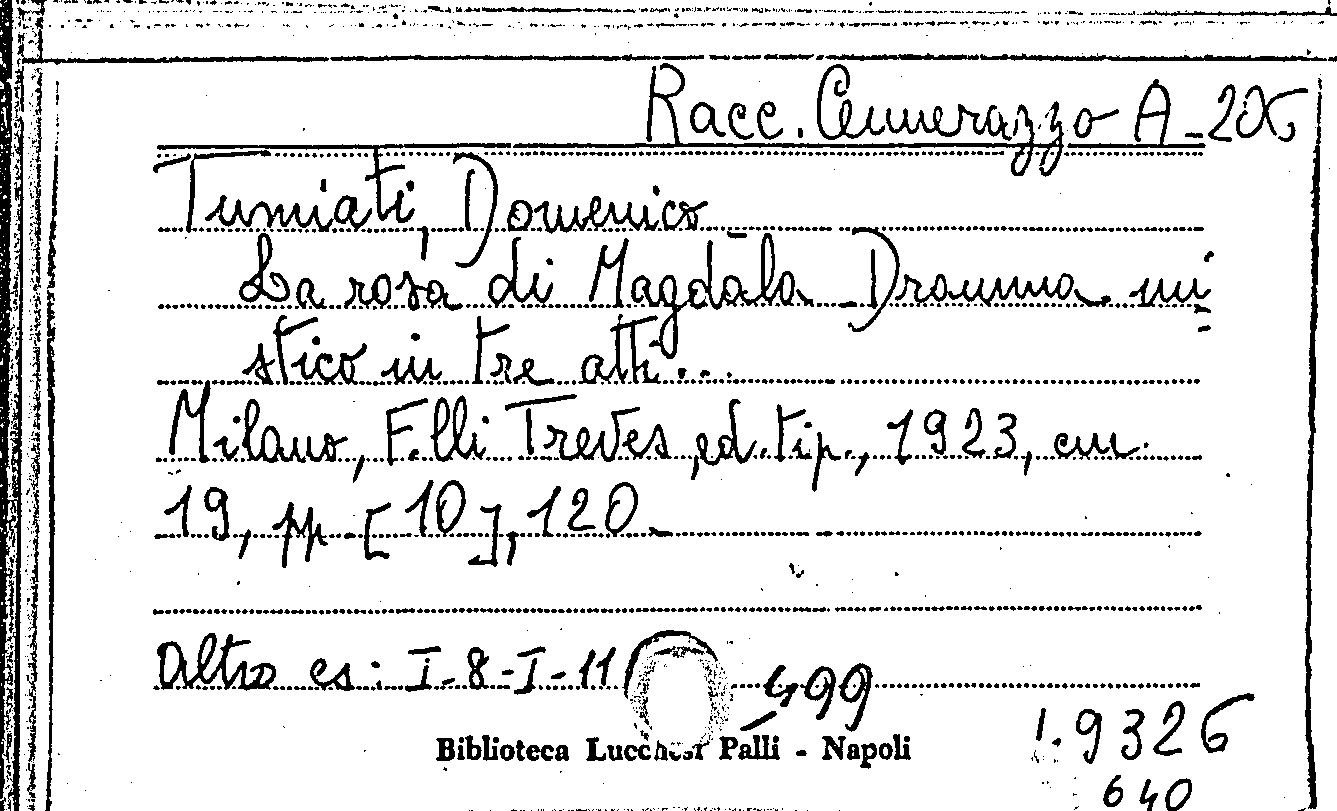 Racc. Cennerazzo A-206
Tumiati, Domenico
La rosa di Magdàla - Dramma mi
stico in tre atti...
Milano, F.lli Treves, ed. tip., 1923, cm.
19, pp. [10], 120.
Altro es: I-8-I-11 499
Biblioteca Lucchesi Palli - Napoli
1.9326
640